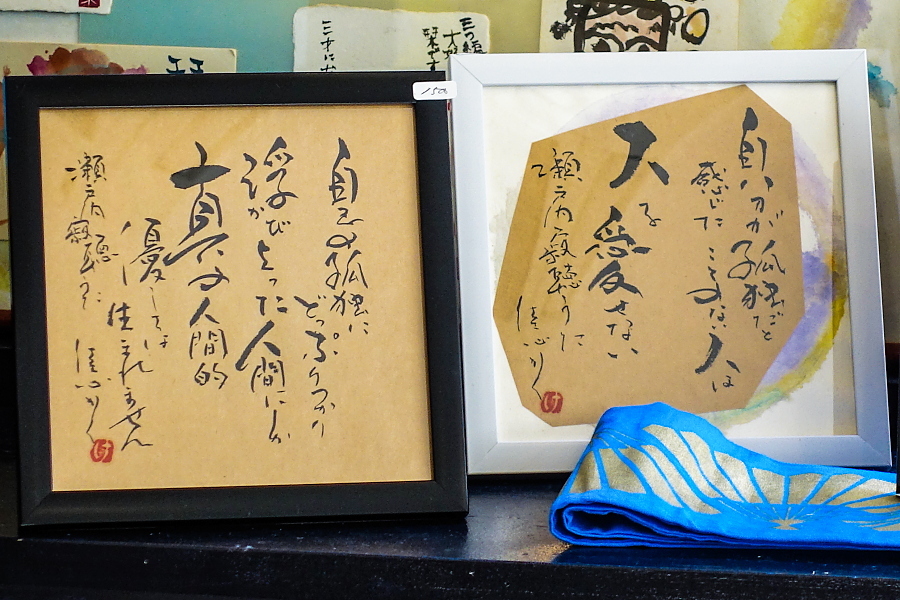 1500
自己の孤独に
どっぷりつかり
浮かび上った人間にしか
真の人間的
優しさは
生まれません
瀬戸内寂聴
自分が孤独だと
感じたことのない人は
人を愛せない
瀬戸内寂聴